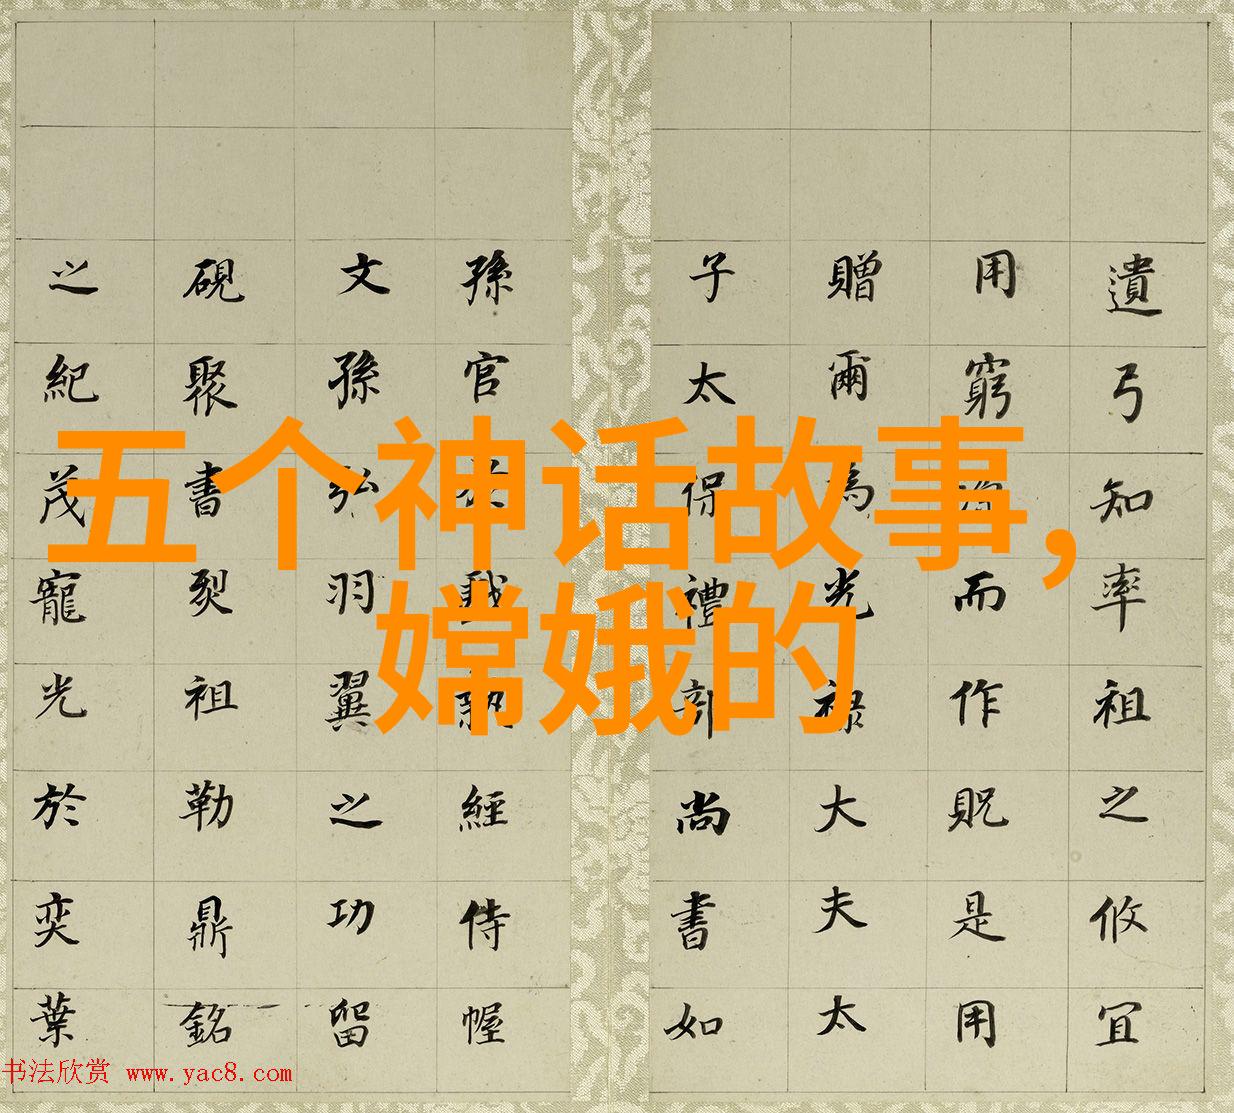 遺弓知率祖之攸宜
用窮而作貺是用
贈爾為光祿大夫太
子太保禮部尚書如
孫官經侍幄
文孫弘羽翼之功留
硯聚書裂祖勒鼎銘
之紀茂寵光於奕葉
五个神话故事,
嫦娥的
书法欣赏 www.yac8.com